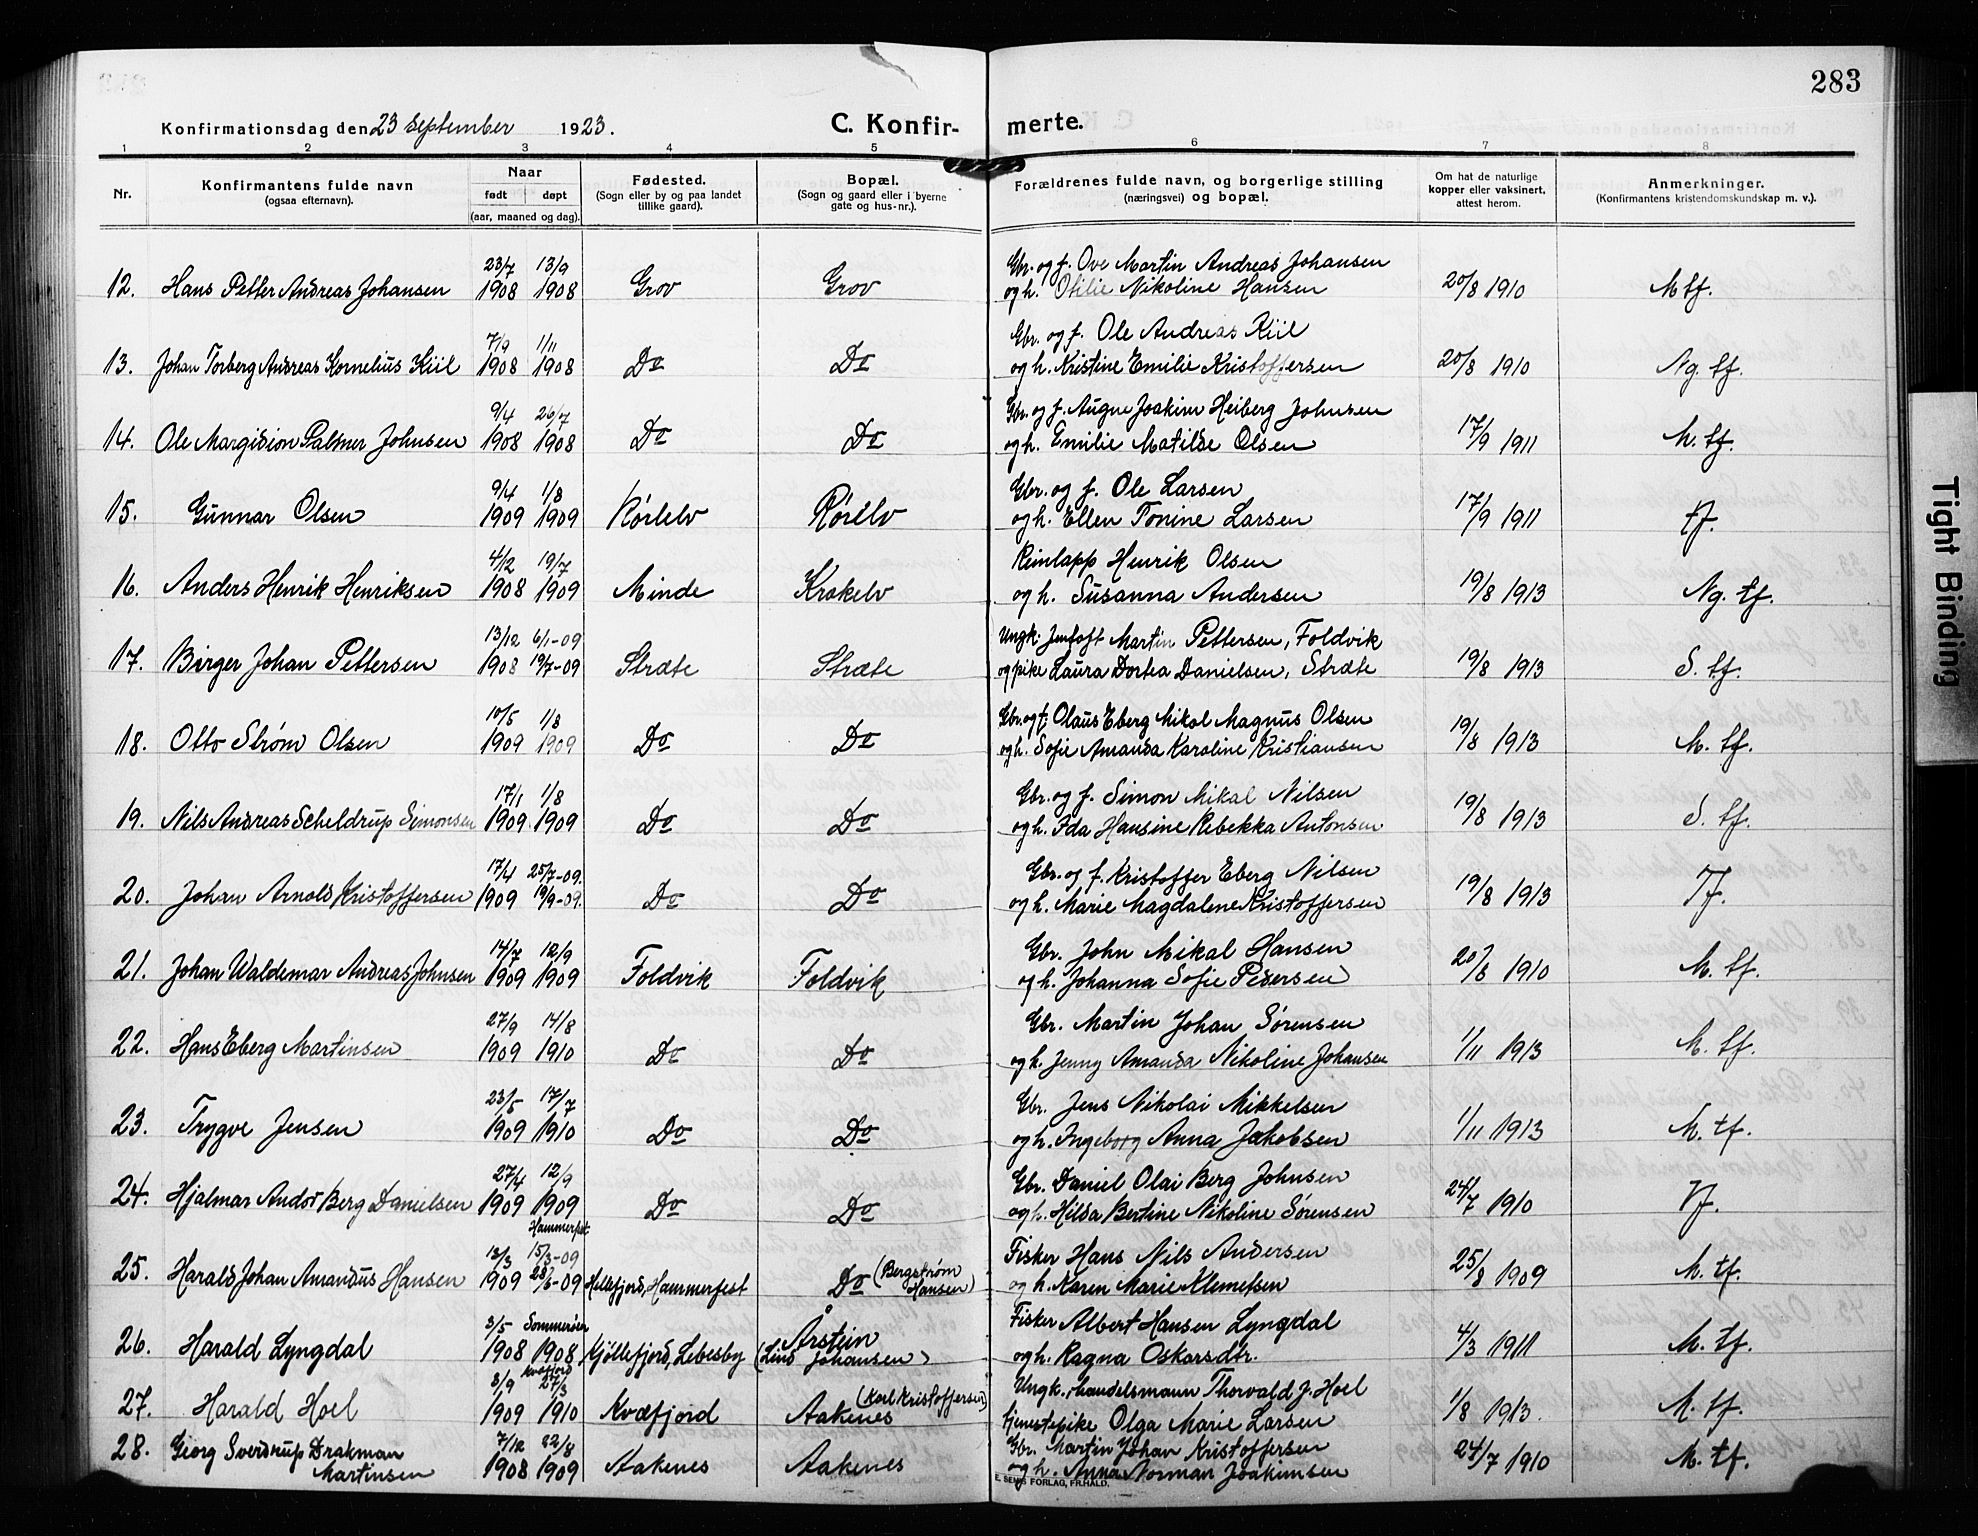 283
Konfirmationsdag den 23 september 1923.
C. Konfirmerte.
1 2 3 4 5 6 7 8
Nr.
Konfirmantens fulde navn
(ogsaa efternavn).
Naar
født døpt
(aar, maaned og dag).
Fødested.
(Sogn eller by og paa landet
tillike gaard).
Bopæl.
(Sogn og gaard eller i byerne
gate og hus-nr.).
Forældrenes fulde navn, og borgerlige stilling
(næringsvei) og bopæl.
Om hat de naturlige
kopper eller vaksinert,
attest herom.
Anmerkninger.
(Konfirmantens kristendomskundskap m. v.).
23/7 13/9 Gbr. og f. Ove Martin Andreas Johansen
12. Hans Petter Andreas Johansen 1908 1908 Grov Grov og h. Otilie Nikoline Hansen 20/8 1910 M tf.
7/9 1/11 Gbr. og f. Ole Andreas Kiil
13. Johan Torberg Andreas Kornelius Kiil 1908 1908 Do Do og h. Kristine Emilie Kristoffersen 20/8 1910 Ng. tf.
9/4 26/7 Gbr. og f. Augne Joakim Heiberg Johnsen
14. Ole Margidion Palmer Johnsen 1908 1908 Do Do og h. Emilie Matilde Olsen 17/9 1911 M. tf.
9/4 1/8 Gbr. og f. Ole Larsen
15. Gunnar Olsen 1909 1909 Rørelv Rørelv og h. Ellen Tonine Larsen 17/9 1911 tf.
4/12 19/7 Reinlapp Henrik Olsen
16. Anders Henrik Henriksen 1908 1909 Minde Krokelv og h. Susanna Andersen 19/8 1913 Ng. tf.
13/12 6/1-09 Ungk. Jentoft Martin Pettersen, Foldvik
17. Birger Johan Pettersen 1908 19/7-09 Stræte Stræte og pike Laura Dortea Danielsen, Stræte 19/8 1913 S. tf.
10/5 1/8 Gbr. og f. Olaus Eberg Mikal Magnus Olsen
18. Otto Strøm Olsen 1909 1909 Do Do og h. Sofie Amanda Karoline Kristiansen 19/8 1913 M. tf.
17/1 1/8 Gbr. og f. Simon Mikal Nilsen
19. Nils Andreas Scheldrup Simonsen 1909 1909 Do Do og h. Ida Hansine Rebekka Antonsen 19/8 1913 S. tf.
17/4 25/7-09. Gbr. og f. Kristoffer Eberg Nilsen
20. Johan Arnold Kristoffersen 1909 19/9-09. Do Do og h. Marie Magdalene Kristoffersen 19/8 1913 Tf.
14/7 12/9 Gbr. John Mikal Hansen
21. Johan Waldemar Andreas Johnsen 1909 1909 Foldvik Foldvik og h. Johanna Sofie Pedersen 20/8 1910 M. tf.
27/9 14/8 Gbr. Martin Johan Sørensen
22. Hans Eberg Martinsen 1909 1910 Do Do og h. Jenny Amanda Nikoline Johansen 1/11 1913 M. tf.
23/5 17/7 Gbr. Jens Nikolai Mikkelsen
23. Trygve Jensen 1909 1910 Do Do og h. Ingeborg Anna Jakobsen 1/11 1913 M. tf.
27/4 12/9 Gbr. Daniel Olai Berg Johnsen
24. Hjalmar Andor Berg Danielsen 1909 1909 Do Do og h. Hilda Bertine Nikoline Sørensen 24/7 1910 Tf.
Hammerfest
13/3 15/3-09 (Bergstrøm Fisker Hans Nils Andersen
25. Harald Johan Amandus Hansen 1909 28/6-09 Hellefjord, Hammerfest Do Hansen) og h. Karen Marie Klemetsen 25/8 1909 M. tf.
3/5 Sommersøen Årstein Fisker Albert Hansen Lyngdal
26. Harald Lyngdal 1908 1908 Kjøllefjord, Lebesby (Lind Johansen) og h. Ragna Oskarsdtr. 4/3 1911 M. tf.
Kvæfjord
8/9 27/3 (Karl Kristoffersen) Ungk. handelsmann Thorvald J. Hoel
27. Harald Hoel 1909 1910 Kvæfjord Aakenes tjenestepike Olga Marie Larsen 1/8 1913. M. tf.
28. Georg Sverdrup Drakman 7/12 22/8 Gbr. Martin Johan Kristoffersen
Martinsen 1908 1909 Aakenes Aakenes og h. Anna Norman Joakimsen 24/7 1910 M. tf.
E. SEMS FORLAG, FR.HALD.
Tight Binding